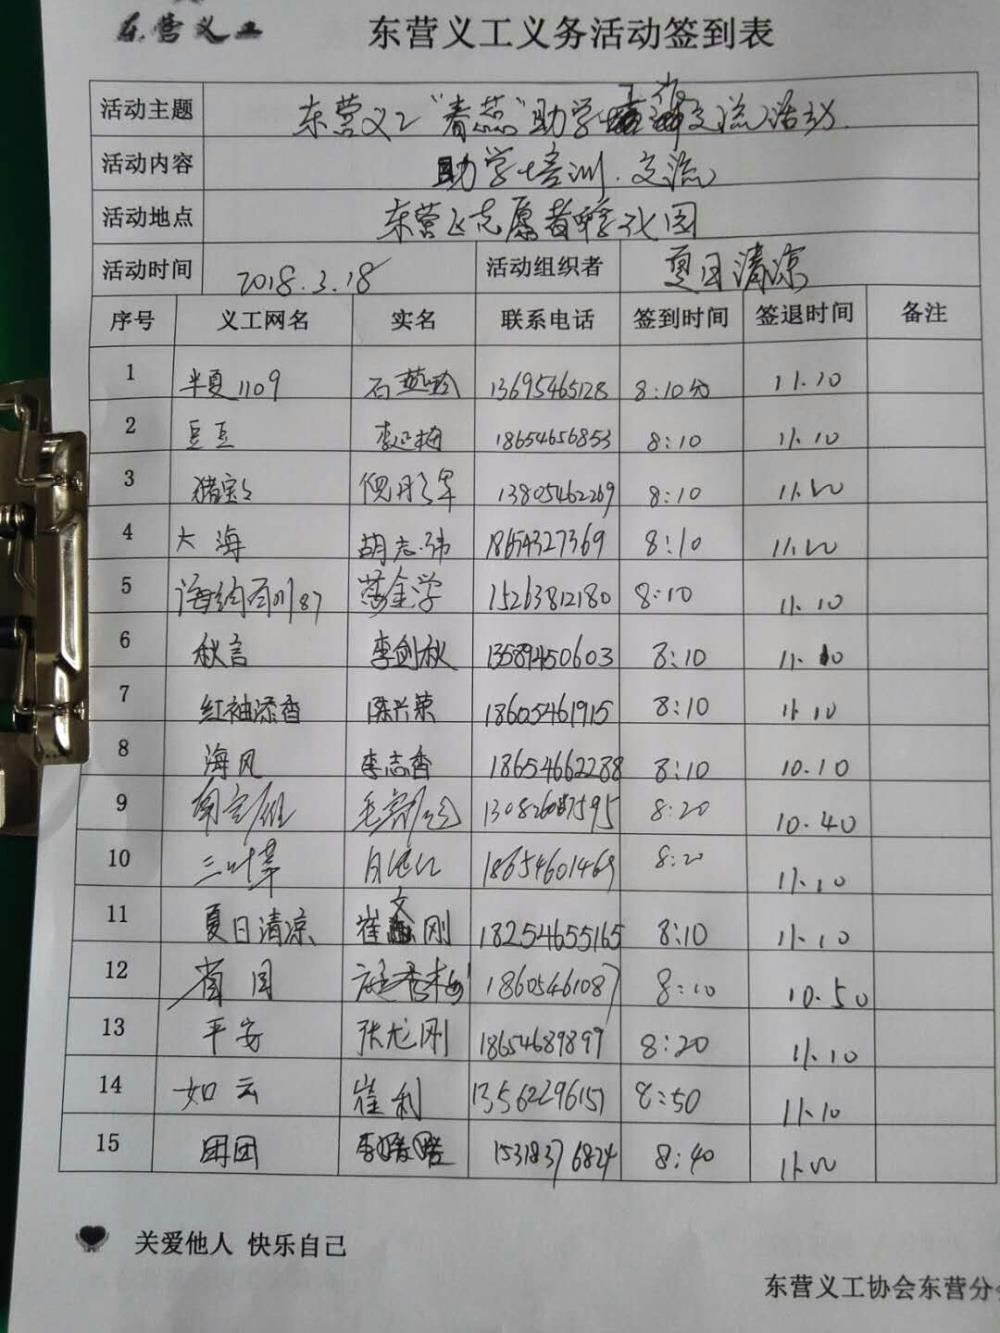 东营义工
东营义工义务活动签到表
活动主题 东营义工"春蕊"助学交流活动
活动内容 助学培训.交流
活动地点 东营区志愿者孵化园
活动时间 2018.3.18 活动组织者 夏日清凉
序号 义工网名 实名 联系电话 签到时间 签退时间 备注
1 半夏1109 石 13695465128 8:10分 11.10
2 豆豆 李延梅 18654656853 8:10 11.10
3 猪宝 倪 军 13805462269 8:10 11.10
4 大海 胡志伟 18654327369 8:10 11.10
5 海纳百川87 金学 15263812180 8:10 11.10
6 秋言 李剑秋 13589450603 8:10 11.10
7 红袖添香 陈兴荣 18605461915 8:10 11.10
8 海风 李志香 18654662288 8:10 10.10
9 毛 8:20 10.40
10 三叶草 18654601469 8:20 11.10
11 夏日清凉 崔文刚 18254655165 8:10 11.10
12 香梅 18605461087 8:10 10.50
13 平安 张龙刚 18654689899 8:20 11.10
14 如云 崔利 13562296157 8:50 11.10
15 团团 李 15318376824 8:40 11.10
关爱他人 快乐自己
东营义工协会东营分